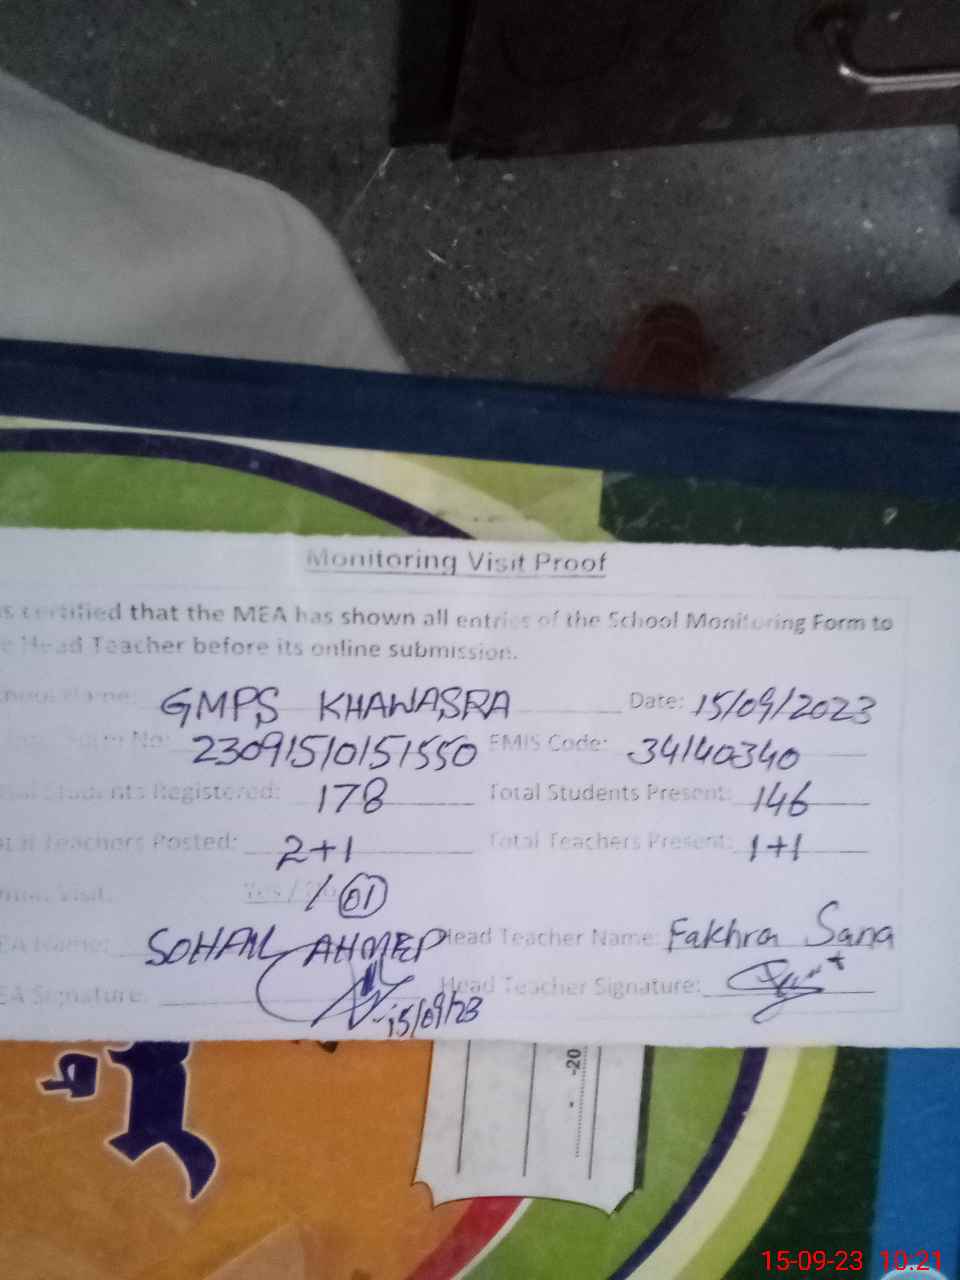 Monitoring Visit Proof
s certified that the MEA has shown all entries of the School Monitoring Form to
e Head Teacher before its online submission.
Name: GMPS KHAWASRA Date: 15/09/2023
No: 23091510151550 EMIS Code: 34140340
Students Registered: 178 Total Students Present: 146
Teachers Posted: 2+1 Total Teachers Present: 1+1
Visit: Yes / No / 01
EA Name: SOHAIL AHMED Head Teacher Name: Fakhra Sana
EA Signature: 15/09/23 Head Teacher Signature:
-20
15-09-23 10:21